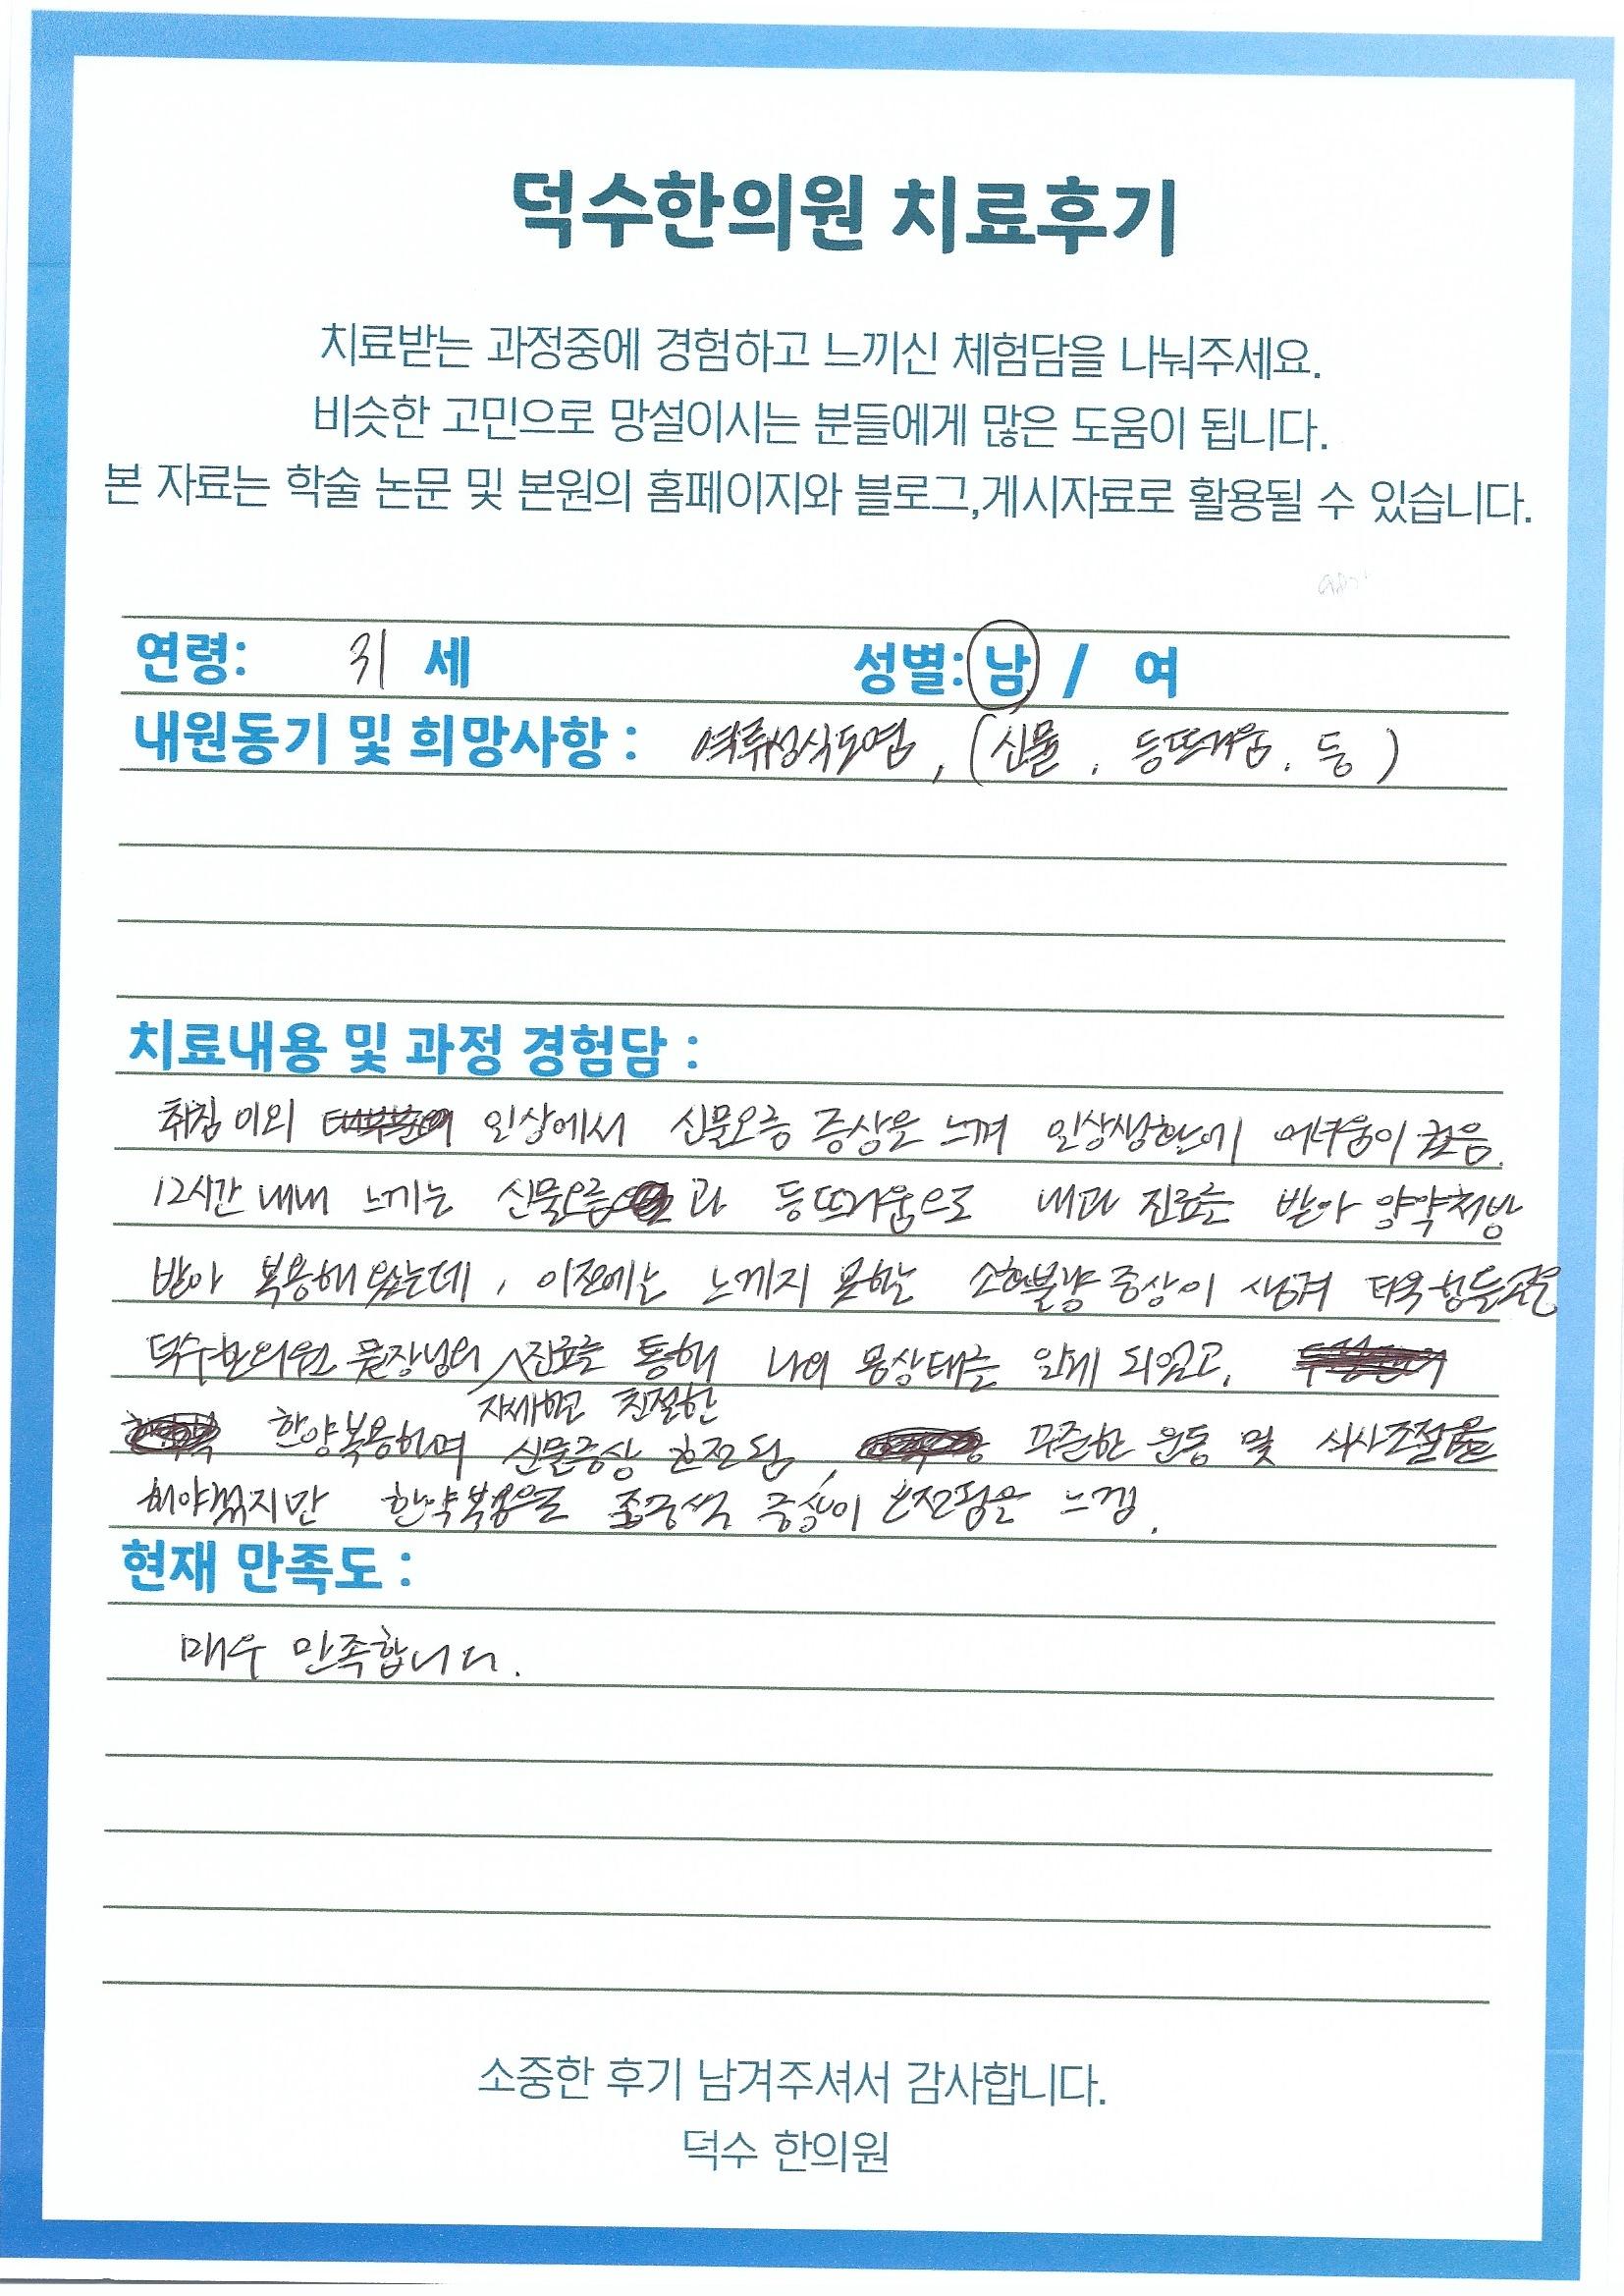 덕수한의원 치료후기
치료받는 과정중에 경험하고 느끼신 체험담을 나눠주세요.
비슷한 고민으로 망설이시는 분들에게 많은 도움이 됩니다.
본 자료는 학술 논문 및 본원의 홈페이지와 블로그,게시자료로 활용될 수 있습니다.
연령: 31 세 성별: 남 / 여
내원동기 및 희망사항 : 역류성식도염, (신물, 등뜨거움. 등)
치료내용 및 과정 경험담 :
취침 이외 일상에서 신물오름 증상을 느껴 일상생활에 어려움이 있음.
12시간 내내 느끼는 신물오름과 등뜨거움으로 내과 진료를 받아 양약처방
받아 복용해 왔는데, 이전에는 느끼지 못하는 소화불량 증상이 생겨 더욱 힘들었음
덕수한의원 원장님의 진료를 통해 나의 몸상태를 알게 되었고,
자세하고 친절한
한약복용하며 신물증상 호전됨, 꾸준한 운동 및 식사조절을
해야겠지만 한약복용을 증상이 호전됨을 느낌.
현재 만족도 :
매우 만족합니다.
소중한 후기 남겨주셔서 감사합니다.
덕수 한의원